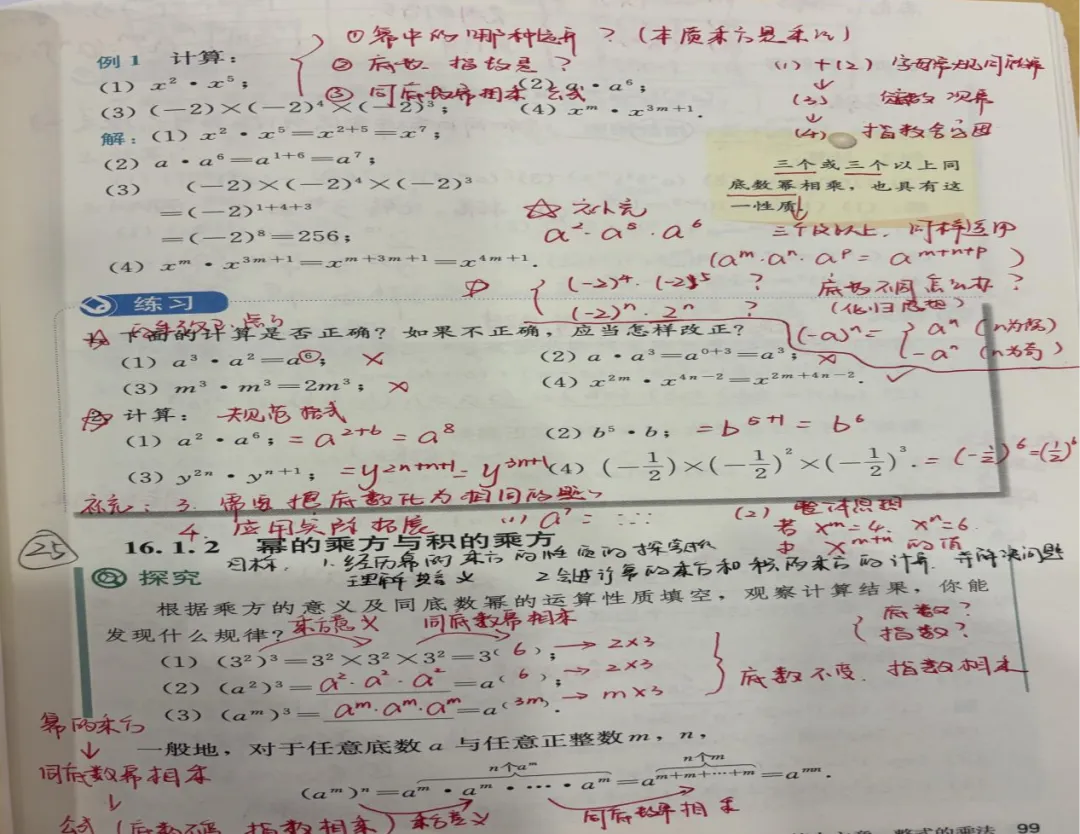 ①幂中的哪种运算？（本质乘方是乘法）
例1 计算：
② 底数 指数是？
(1)+(2) 字母常规同底幂
(1) x²·x⁵； (2) a·a⁶；
③ 同底数幂相乘 公式
(3) 数 次幂
(3) (−2)×(−2)⁴×(−2)³； (4) xᵐ·x³ᵐ⁺¹.
(4) 指数含字母
解：(1) x²·x⁵=x²⁺⁵=x⁷；
(2) a·a⁶=a¹⁺⁶=a⁷；
(3) (−2)×(−2)⁴×(−2)³
=(−2)¹⁺⁴⁺³
=(−2)⁸=256；
(4) xᵐ·x³ᵐ⁺¹=xᵐ⁺³ᵐ⁺¹=x⁴ᵐ⁺¹.
三个或三个以上同
底数幂相乘，也具有这
一性质.
☆ 补充
a²·a⁵·a⁶
三个及以上，同样适用
(aᵐ·aⁿ·aᵖ=aᵐ⁺ⁿ⁺ᵖ)
(−2)⁴·(−2)⁵ ?
(−2)ⁿ·2ⁿ ?
底数不同怎么办？
（化归思想）
(−a)ⁿ= { aⁿ (n为偶)
−aⁿ (n为奇)
练习
1. 下面的计算是否正确？如果不正确，应当怎样改正？
(1) a³·a²=a⁶； × (2) a·a³=a⁰⁺³=a³； ×
(3) m³·m³=2m³； × (4) x²ᵐ·x⁴ⁿ⁻²=x²ᵐ⁺⁴ⁿ⁻². ✓
2. 计算： 规范格式
(1) a²·a⁶； =a²⁺⁶=a⁸ (2) b⁵·b； =b⁵⁺¹=b⁶
(3) y²ⁿ·yⁿ⁺¹； =y²ⁿ⁺ⁿ⁺¹=y³ⁿ⁺¹ (4) (−1/2)×(−1/2)²×(−1/2)³. =(−1/2)⁶=(1/2)⁶
补充：3. 需要把底数化为相同的题
4. 应用实际拓展 (1) a⁷= (2) 整体思想
若xᵐ=4，xⁿ=6
求xᵐ⁺ⁿ的值
25
16.1.2 幂的乘方与积的乘方
目标：1.经历幂的乘方的性质的探究
理解其意义 2.会进行幂的乘方和积的乘方的计算，并解决问题
探究
根据乘方的意义及同底数幂的运算性质填空，观察计算结果，你能
发现什么规律？
乘方意义 同底数幂相乘
{ 底数？
指数？
(1) (3²)³=3²×3²×3²=3⁽⁶⁾； → 2×3
(2) (a²)³=a²·a²·a²=a⁽⁶⁾； → 2×3
(3) (aᵐ)³=aᵐ·aᵐ·aᵐ=a⁽³ᵐ⁾. → m×3
底数不变，指数相乘
幂的乘方
一般地，对于任意底数 a 与任意正整数 m，n，
↓
同底数幂相乘
n个aᵐ n个m
(aᵐ)ⁿ=aᵐ·aᵐ·⋯·aᵐ=aᵐ⁺ᵐ⁺⋯⁺ᵐ=aᵐⁿ.
↓
公式（底数不变 指数相乘） 乘方意义 同底数幂相乘
整式的乘法 99